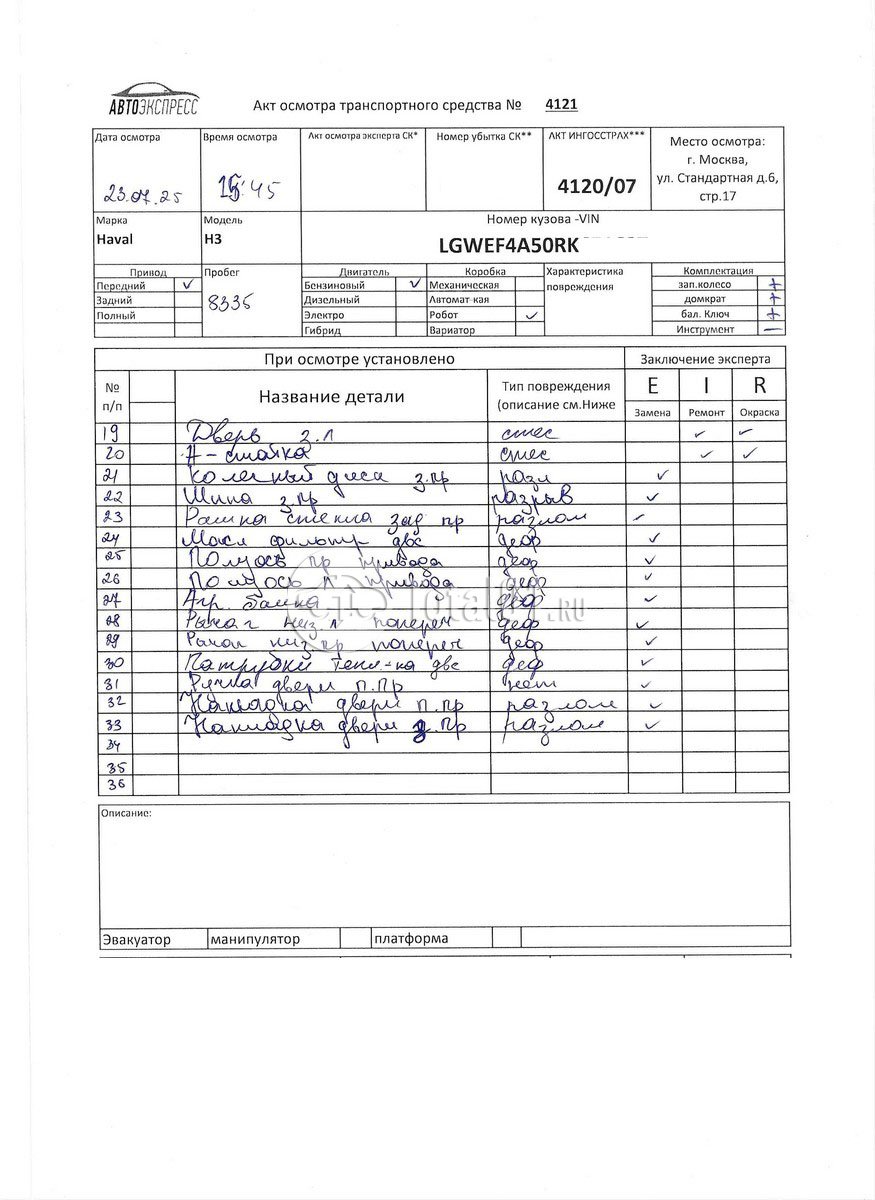 АВТОЭКСПРЕСС
Акт осмотра транспортного средства № 4121
Дата осмотра
23.07.25
Время осмотра
15:45
Акт осмотра эксперта СК*
Номер убытка СК**
АКТ ИНГОССТРАХ***
4120/07
Место осмотра:
г. Москва,
ул. Стандартная д.6,
стр.17
Марка
Haval
Модель
H3
Номер кузова -VIN
LGWEF4A50RK
Привод
Передний ✓
Задний
Полный
Пробег
8335
Двигатель
Бензиновый ✓
Дизельный
Электро
Гибрид
Коробка
Механическая
Автомат кая
Робот ✓
Вариатор
Характеристика
повреждения
Комплектация
зап.колесо +
домкрат +
бал. Ключ +
Инструмент —
При осмотре установлено
Заключение эксперта
№
п/п
Название детали
Тип повреждения
(описание см.Ниже
E I R
Замена Ремонт Окраска
19 Дверь з.л ✓ ✓
20 А-стойка ✓ ✓
21 диса з.пр разл ✓
22 Шина з.пр разрыв ✓
23 Рамка стекла зад пр разлом ✓
24 Масл фильтр двс деф ✓
25 Полуось пр привода деф ✓
26 Полуось л привода деф ✓
27 деф ✓
28 Рычаг низ.л попереч деф ✓
29 Рычаг низ.пр попереч деф ✓
30 Патрубки двс деф ✓
31 Ручка двери п.пр нет ✓
32 Накладка двери п.пр разлом ✓
33 Накладка двери з.пр разлом ✓
34
35
36
Описание:
Эвакуатор манипулятор платформа
Total01.RU